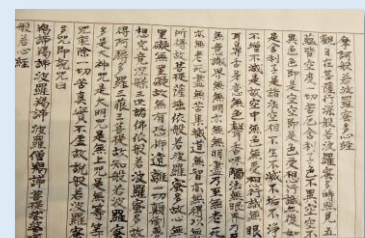 摩訶般若波羅蜜多心經
觀自在菩薩行深般若波羅蜜多時照見五
蘊皆空度一切苦厄舍利子色不異空空不
異色色即是空空即是色受想行識亦復如
是舍利子是諸法空相不生不滅不垢不淨
不增不減是故空中無色無受想行識無眼
耳鼻舌身意無色聲香味觸法無眼界乃至
無意識界無無明亦無無明盡乃至無老死
亦無老死盡無苦集滅道無智亦無得以無
所得故菩提薩埵依般若波羅蜜多故心無
罣礙無罣礙故無有恐怖遠離一切顛倒夢
想究竟涅槃三世諸佛依般若波羅蜜多故
得阿耨多羅三藐三菩提故知般若波羅蜜
多是大神咒是大明咒是無上咒是無等等
咒能除一切苦真實不虛故說般若波羅蜜
多咒即說咒曰
揭諦揭諦 波羅揭諦 波羅僧揭諦 菩提薩婆
般若心經